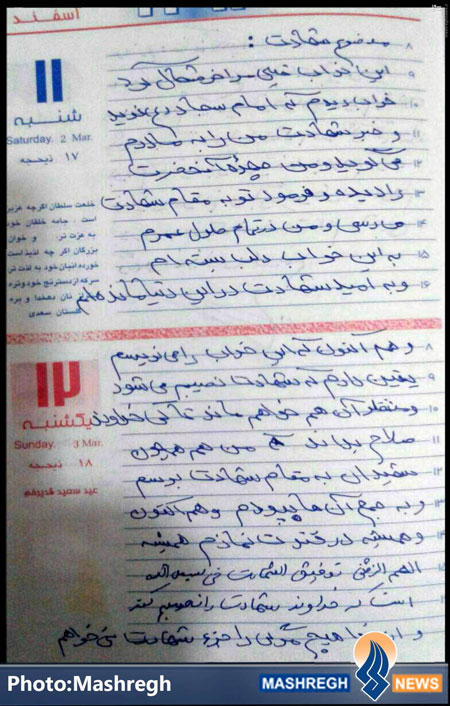 اسفند
۱۱
شنبه
Saturday, 2 Mar.
۱۷ ذیحجه
خلعت سلطان اگر چه عزیز
است، جامه خلقان خود
به عزت تر، و خوان
بزرگان اگر چه لذیذ است
خورده انبان خود به لذت تر
سرکه از دسترنج خود و تره
نان بدهخدا و بره
گلستان سعدی
۸ موضوع شهادت:
۹ این خواب خیلی مرا خوشحال کرد
۱۰ خواب دیدم که امام سجاد
۱۱ و خبر شهادت من را به مادرم
۱۲ می گوید و من چهره آنحضرت
۱۳ را دیده و فرمود تو به مقام شهادت
۱۴ می رسی و من در تمام طول عمرم
۱۵ به این خواب دلبسته ام
۱۶ و به امید شهادت در این دنیا مانده ام
۱۲
یکشنبه
Sunday, 3 Mar.
۱۸ ذیحجه
عید سعید غدیر خم
۸ و هم اکنون که این خواب را می نویسم
۹ یقین دارم که شهادت نصیبم می شود
۱۰ و منتظر آن هم خواهم ماند تا کی خداوند
۱۱ صلاح بداند که من هم همچون
۱۲ شهیدان به مقام شهادت برسم
۱۳ و به جمع آن ها بپیوندم و هم اکنون
۱۴ و همیشه در قنوت نمازم همیشه
۱۵ اللهم ارزقنی توفیق الشهادت فی سبیل الله
است که خداوند شهادت را نصیبم کند
و از خدا هیچ مرگی را جزء شهادت نمی خواهم
Photo:Mashregh
MASHREGH NEWS